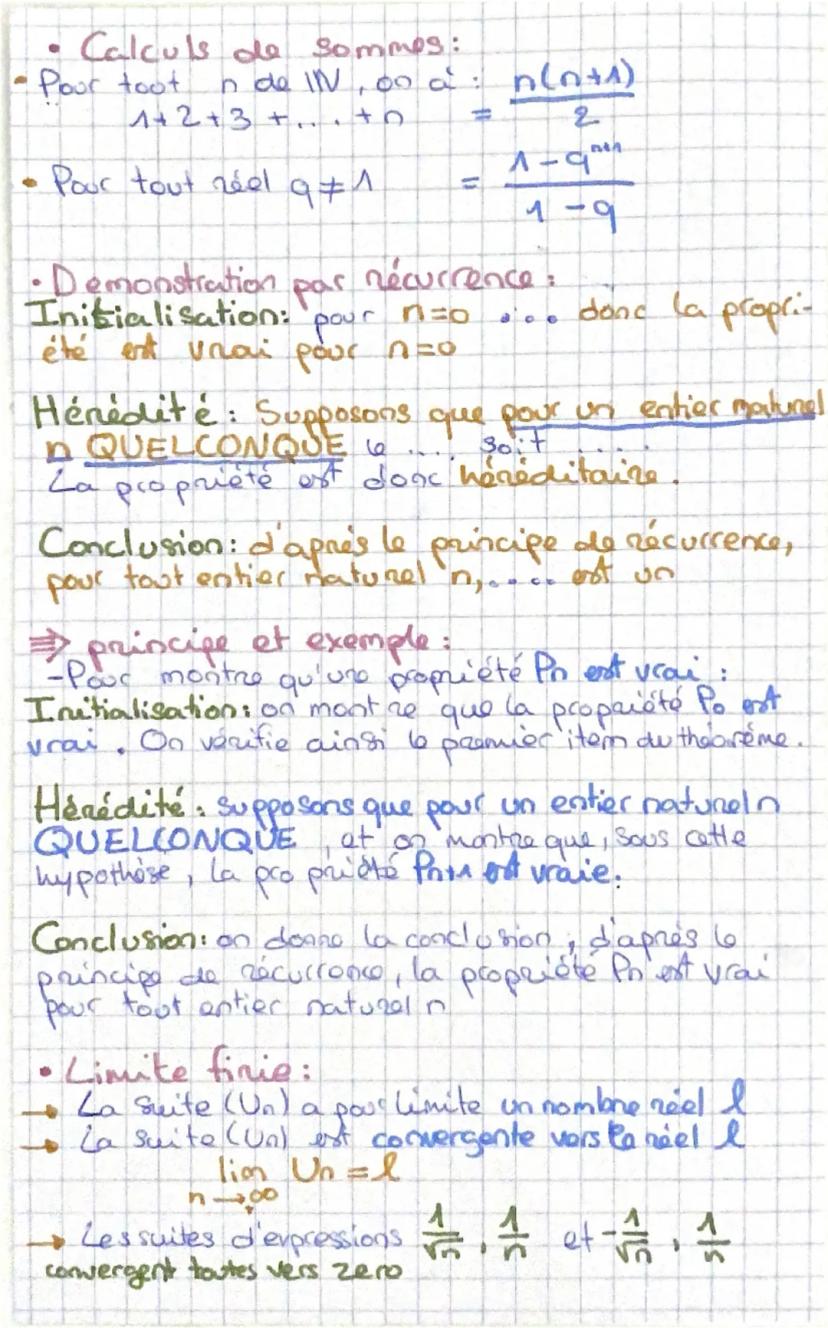 • Calculs de sommes:
• Pour tout n de IN, on a : n(n+1)
1+2+3+...+n = 2
• Pour tout réel q ≠ 1 = 1-q^{n+1} / 1-q
• Demonstration par récurrence:
Initialisation: pour n=0 ... donc la propri-
été est vrai pour n=0
Hérédité: Supposons que pour un entier naturel
n QUELCONQUE le .... soit ....
La propriété est donc héréditaire.
Conclusion: d'après le principe de récurrence,
pour tout entier naturel n,.... est un
⇒ principe et exemple:
-Pour montre qu'une propriété Pn est vrai :
Initialisation: on montre que la propriété P0 est
vrai. On vérifie ainsi le premier item du théorème.
Hérédité: supposons que pour un entier naturel n
QUELCONQUE, et on montre que, sous cette
hypothèse, la propriété Pn+1 est vraie.
Conclusion: on donne la conclusion, d'après le
principe de récurrence, la propriété Pn est vrai
pour tout entier naturel n
• Limite finie:
→ La suite (Un) a pour limite un nombre réel l
→ La suite (Un) est convergente vers le réel l
lim Un = l
n→∞
→ Les suites d'expressions 1/√n, 1/n et -1/√n, 1/n
convergent toutes vers zero